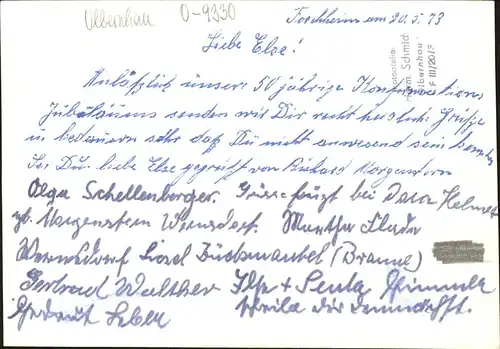 Olbernhau O-9330
Forchheim am 20.5.73
Liebe Else!
Anläßlich unsere 50 jährige Konfirmations
Jubiläums senden wir Dir recht herzliche Grüße
u bedauern sehr daß Du nicht anwesend sein konntest
Sei Du liebe Else gegrüßt von Richard Morgenstern
Olga Schellenberger. Grüsse fügt bei Dora Helmert
gb. Morgenstern Wernsdorf. Martha
Wernsdorf Liesel Bücksmantel (Braune)
Gertrud Walther Ilse + Senta
Gertraut
Schmidt
Olbernhau
III/2017